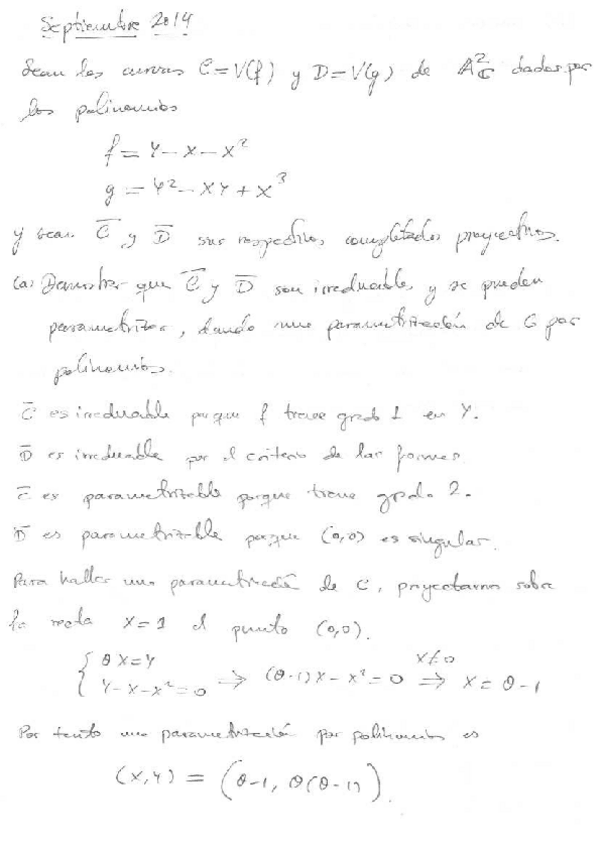 Septiembre 2014
Sean las curvas C=V(f) y D=V(g) de A²_C dadas por
los polinomios
f = Y - X - X²
g = Y² - XY + X³
y sean C̅ y D̅ sus respectivos completados proyectivos.
(a) Demostrar que C̅ y D̅ son irreducibles y se pueden
parametrizar, dando una parametrización de C por
polinomios.
C̅ es irreducible porque f tiene grado 1 en Y.
D̅ es irreducible por el criterio de las formas.
C̅ es parametrizable porque tiene grado 2.
D̅ es parametrizable porque (0,0) es singular.
Para hallar una parametrización de C, proyectamos sobre
la recta X=1 el punto (0,0).
{ θX=Y
{ Y-X-X²=0 ⇒ (θ-1)X-X²=0 ⇒ X≠0 X=θ-1
Por tanto una parametrización por polinomios es
(X,Y) = (θ-1, θ(θ-1)).